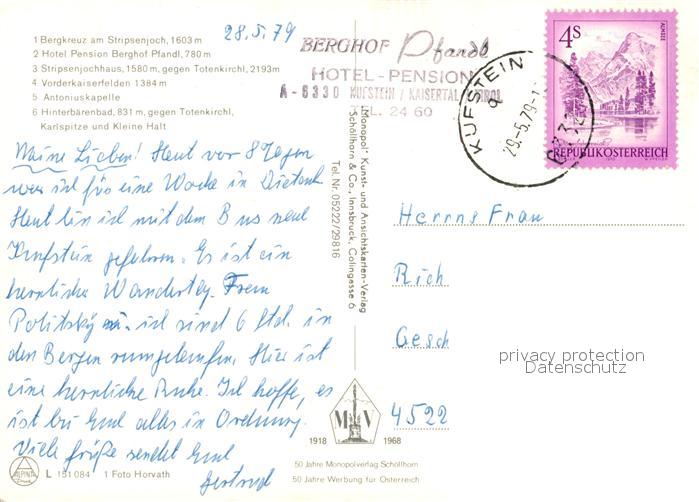 28.5.79
1 Bergkreuz am Stripsenjoch, 1603 m
2 Hotel Pension Berghof Pfandl, 780 m
3 Stripsenjochhaus, 1580 m, gegen Totenkirchl, 2193 m
4 Vorderkaiserfelden 1384 m
5 Antoniuskapelle
6 Hinterbärenbad, 831 m, gegen Totenkirchl,
Karlspitze und Kleine Halt
BERGHOF Pfandl
HOTEL-PENSION
A-6330 KUFSTEIN / KAISERTAL TIROL
TEL. 24 60
KUFSTEIN
a
29.-5.79-1
6332
4 S
ALMSEE
REPUBLIK ÖSTERREICH
Meine Lieben! Heut vor 8 Tagen
war ich für eine Woche in
Heut bin ich mit dem Bus nach
Kufstein gefahren. Es ist ein
herrlicher Wandertag. Frau
Politsky u. ich sind 6 Std. in
den Bergen rumgelaufen. Hier ist
eine herrliche Ruhe. Ich hoffe, es
ist bei Euch alles in Ordnung.
Viele Grüße sendet Euch
Gertrud
Monopol Kunst- und Ansichtskarten-Verlag
Schöllhorn & Co., Innsbruck, Colingasse 6
Tel. Nr. 05222/29816
Herrn u. Frau
Rich
Gesch
4522
privacy protection
Datenschutz
M V
1918 1968
50 Jahre Monopolverlag Schöllhorn
50 Jahre Werbung für Österreich
ALPINA
Druck
L 151 084 1 Foto Horvath